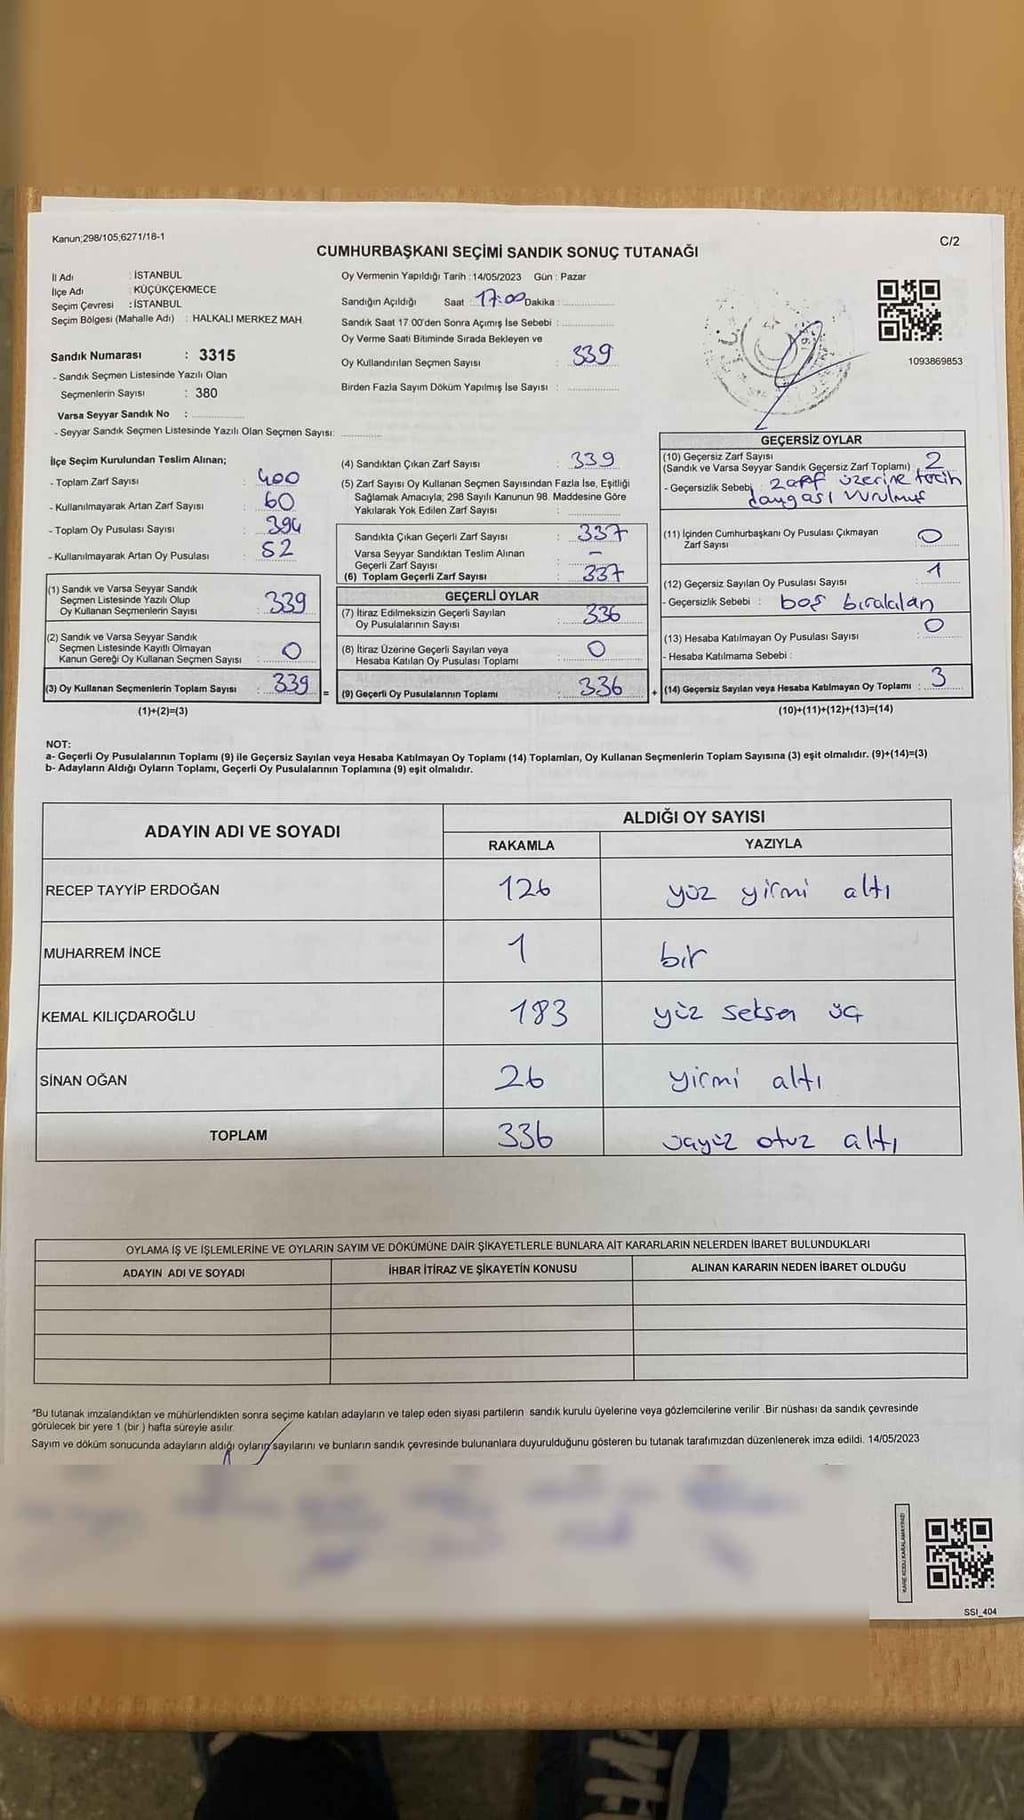 Kanun;298/105;6271/18-1
C/2
CUMHURBAŞKANI SEÇİMİ SANDIK SONUÇ TUTANAĞI
İl Adı : İSTANBUL
İlçe Adı : KÜÇÜKÇEKMECE
Seçim Çevresi : İSTANBUL
Seçim Bölgesi (Mahalle Adı) : HALKALI MERKEZ MAH.
Sandık Numarası : 3315
- Sandık Seçmen Listesinde Yazılı Olan
Seçmenlerin Sayısı : 380
Varsa Seyyar Sandık No :
- Seyyar Sandık Seçmen Listesinde Yazılı Olan Seçmen Sayısı:
Oy Vermenin Yapıldığı Tarih : 14/05/2023 Gün : Pazar
Sandığın Açıldığı Saat : 17:00 Dakika :
Sandık Saat 17 00'den Sonra Açımış İse Sebebi :
Oy Verme Saati Bitiminde Sırada Bekleyen ve
Oy Kullandırılan Seçmen Sayısı : 339
Birden Fazla Sayım Döküm Yapılmış İse Sayısı :
1093869853
İlçe Seçim Kurulundan Teslim Alınan;
- Toplam Zarf Sayısı : 400
- Kullanılmayarak Artan Zarf Sayısı : 60
- Toplam Oy Pusulası Sayısı : 394
- Kullanılmayarak Artan Oy Pusulası : 52
(1) Sandık ve Varsa Seyyar Sandık
Seçmen Listesinde Yazılı Olup
Oy Kullanan Seçmenlerin Sayısı : 339
(2) Sandık ve Varsa Seyyar Sandık
Seçmen Listesinde Kayıtlı Olmayan
Kanun Gereği Oy Kullanan Seçmen Sayısı : 0
(3) Oy Kullanan Seçmenlerin Toplam Sayısı : 339 =
(1)+(2)=(3)
(4) Sandıktan Çıkan Zarf Sayısı : 339
(5) Zarf Sayısı Oy Kullanan Seçmen Sayısından Fazla İse, Eşitliği
Sağlamak Amacıyla; 298 Sayılı Kanunun 98. Maddesine Göre
Yakılarak Yok Edilen Zarf Sayısı :
Sandıkta Çıkan Geçerli Zarf Sayısı : 337
Varsa Seyyar Sandıktan Teslim Alınan
Geçerli Zarf Sayısı : -
(6) Toplam Geçerli Zarf Sayısı : 337
GEÇERLİ OYLAR
(7) İtiraz Edilmeksizin Geçerli Sayılan
Oy Pusulalarının Sayısı : 336
(8) İtiraz Üzerine Geçerli Sayılan veya
Hesaba Katılan Oy Pusulası Toplamı : 0
(9) Geçerli Oy Pusulalarının Toplamı : 336 +
GEÇERSİZ OYLAR
(10) Geçersiz Zarf Sayısı
(Sandık ve Varsa Seyyar Sandık Geçersiz Zarf Toplamı) : 2
- Geçersizlik Sebebi : zarf üzerine tercih
damgası vurulmuş
(11) İçinden Cumhurbaşkanı Oy Pusulası Çıkmayan
Zarf Sayısı : 0
(12) Geçersiz Sayılan Oy Pusulası Sayısı : 1
- Geçersizlik Sebebi : boş bırakılan
(13) Hesaba Katılmayan Oy Pusulası Sayısı : 0
- Hesaba Katılmama Sebebi :
(14) Geçersiz Sayılan veya Hesaba Katılmayan Oy Toplamı : 3
(10)+(11)+(12)+(13)=(14)
NOT:
a- Geçerli Oy Pusulalarının Toplamı (9) ile Geçersiz Sayılan veya Hesaba Katılmayan Oy Toplamı (14) Toplamları, Oy Kullanan Seçmenlerin Toplam Sayısına (3) eşit olmalıdır. (9)+(14)=(3)
b- Adayların Aldığı Oyların Toplamı, Geçerli Oy Pusulalarının Toplamına (9) eşit olmalıdır.
ADAYIN ADI VE SOYADI
ALDIĞI OY SAYISI
RAKAMLA YAZIYLA
RECEP TAYYİP ERDOĞAN 126 yüz yirmi altı
MUHARREM İNCE 1 bir
KEMAL KILIÇDAROĞLU 183 yüz seksen üç
SİNAN OĞAN 26 yirmi altı
TOPLAM 336 üçyüz otuz altı
OYLAMA İŞ VE İŞLEMLERİNE VE OYLARIN SAYIM VE DÖKÜMÜNE DAİR ŞİKAYETLERLE BUNLARA AİT KARARLARIN NELERDEN İBARET BULUNDUKLARI
ADAYIN ADI VE SOYADI İHBAR İTİRAZ VE ŞİKAYETİN KONUSU ALINAN KARARIN NEDEN İBARET OLDUĞU
*Bu tutanak imzalandıktan ve mühürlendikten sonra seçime katılan adayların ve talep eden siyasi partilerin sandık kurulu üyelerine veya gözlemcilerine verilir .Bir nüshası da sandık çevresinde
görülecek bir yere 1 (bir ) hafta süreyle asılır.
Sayım ve döküm sonucunda adayların aldığı oyların sayılarını ve bunların sandık çevresinde bulunanlara duyurulduğunu gösteren bu tutanak tarafımızdan düzenlenerek imza edildi. 14/05/2023
KARE KODU KARALAMAYINIZ!
SSI_404